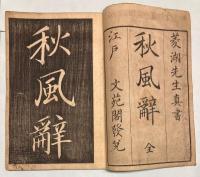 菱湖先生真書
秋風辭
全
江戸 文苑閣發兌
秋風辭